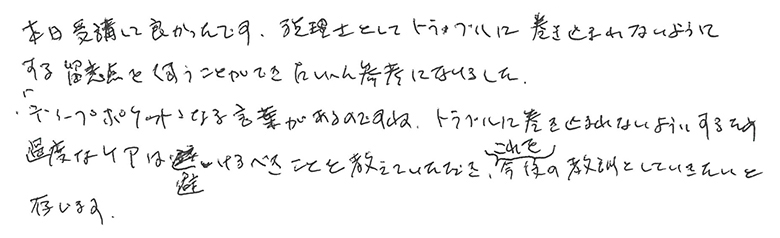 本日受講して良かったです。税理士としてトラブルに巻き込まれないように
する留意点を伺うことができたいへん参考になりました。
"ディープポケット"なる言葉があるのですね。トラブルに巻き込まれないようにするため
過度なケアは避けるべきことを教えていただき、これを今後の教訓としていきたいと
存じます。